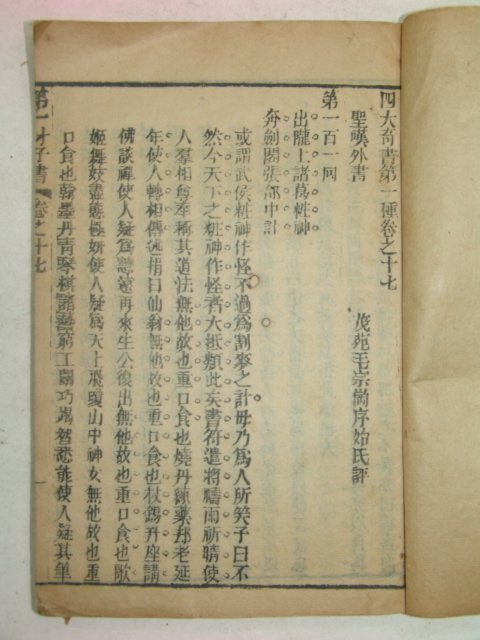 四大奇書第一種卷之十七
聖嘆外書
茂苑毛宗崗序始氏評
第一百一回
出隴上諸葛粧神
奔劍閣張郃中計
或謂武侯粧神作怪不過爲割麥之計毋乃爲人所笑予曰不
然今天下之粧神作怪者大抵類此矣書符遣將禱雨祈晴使
人羣相尊奉稱其道法無他故也重口食也燒丹鍊藥却老延
年使人轉相傳述指曰仙翁無他故也重口食也杖錫升座講
佛談禪使人疑爲慧遠再來生公復出無他故也重口食也歌
姬舞妓盡態極妍使人疑爲天上飛瓊山中神女無他故也重
口食也翰墨丹靑琴棋諸藝窮工鬬巧竭智悉能使人疑其筆
第一才子書
卷之十七
一